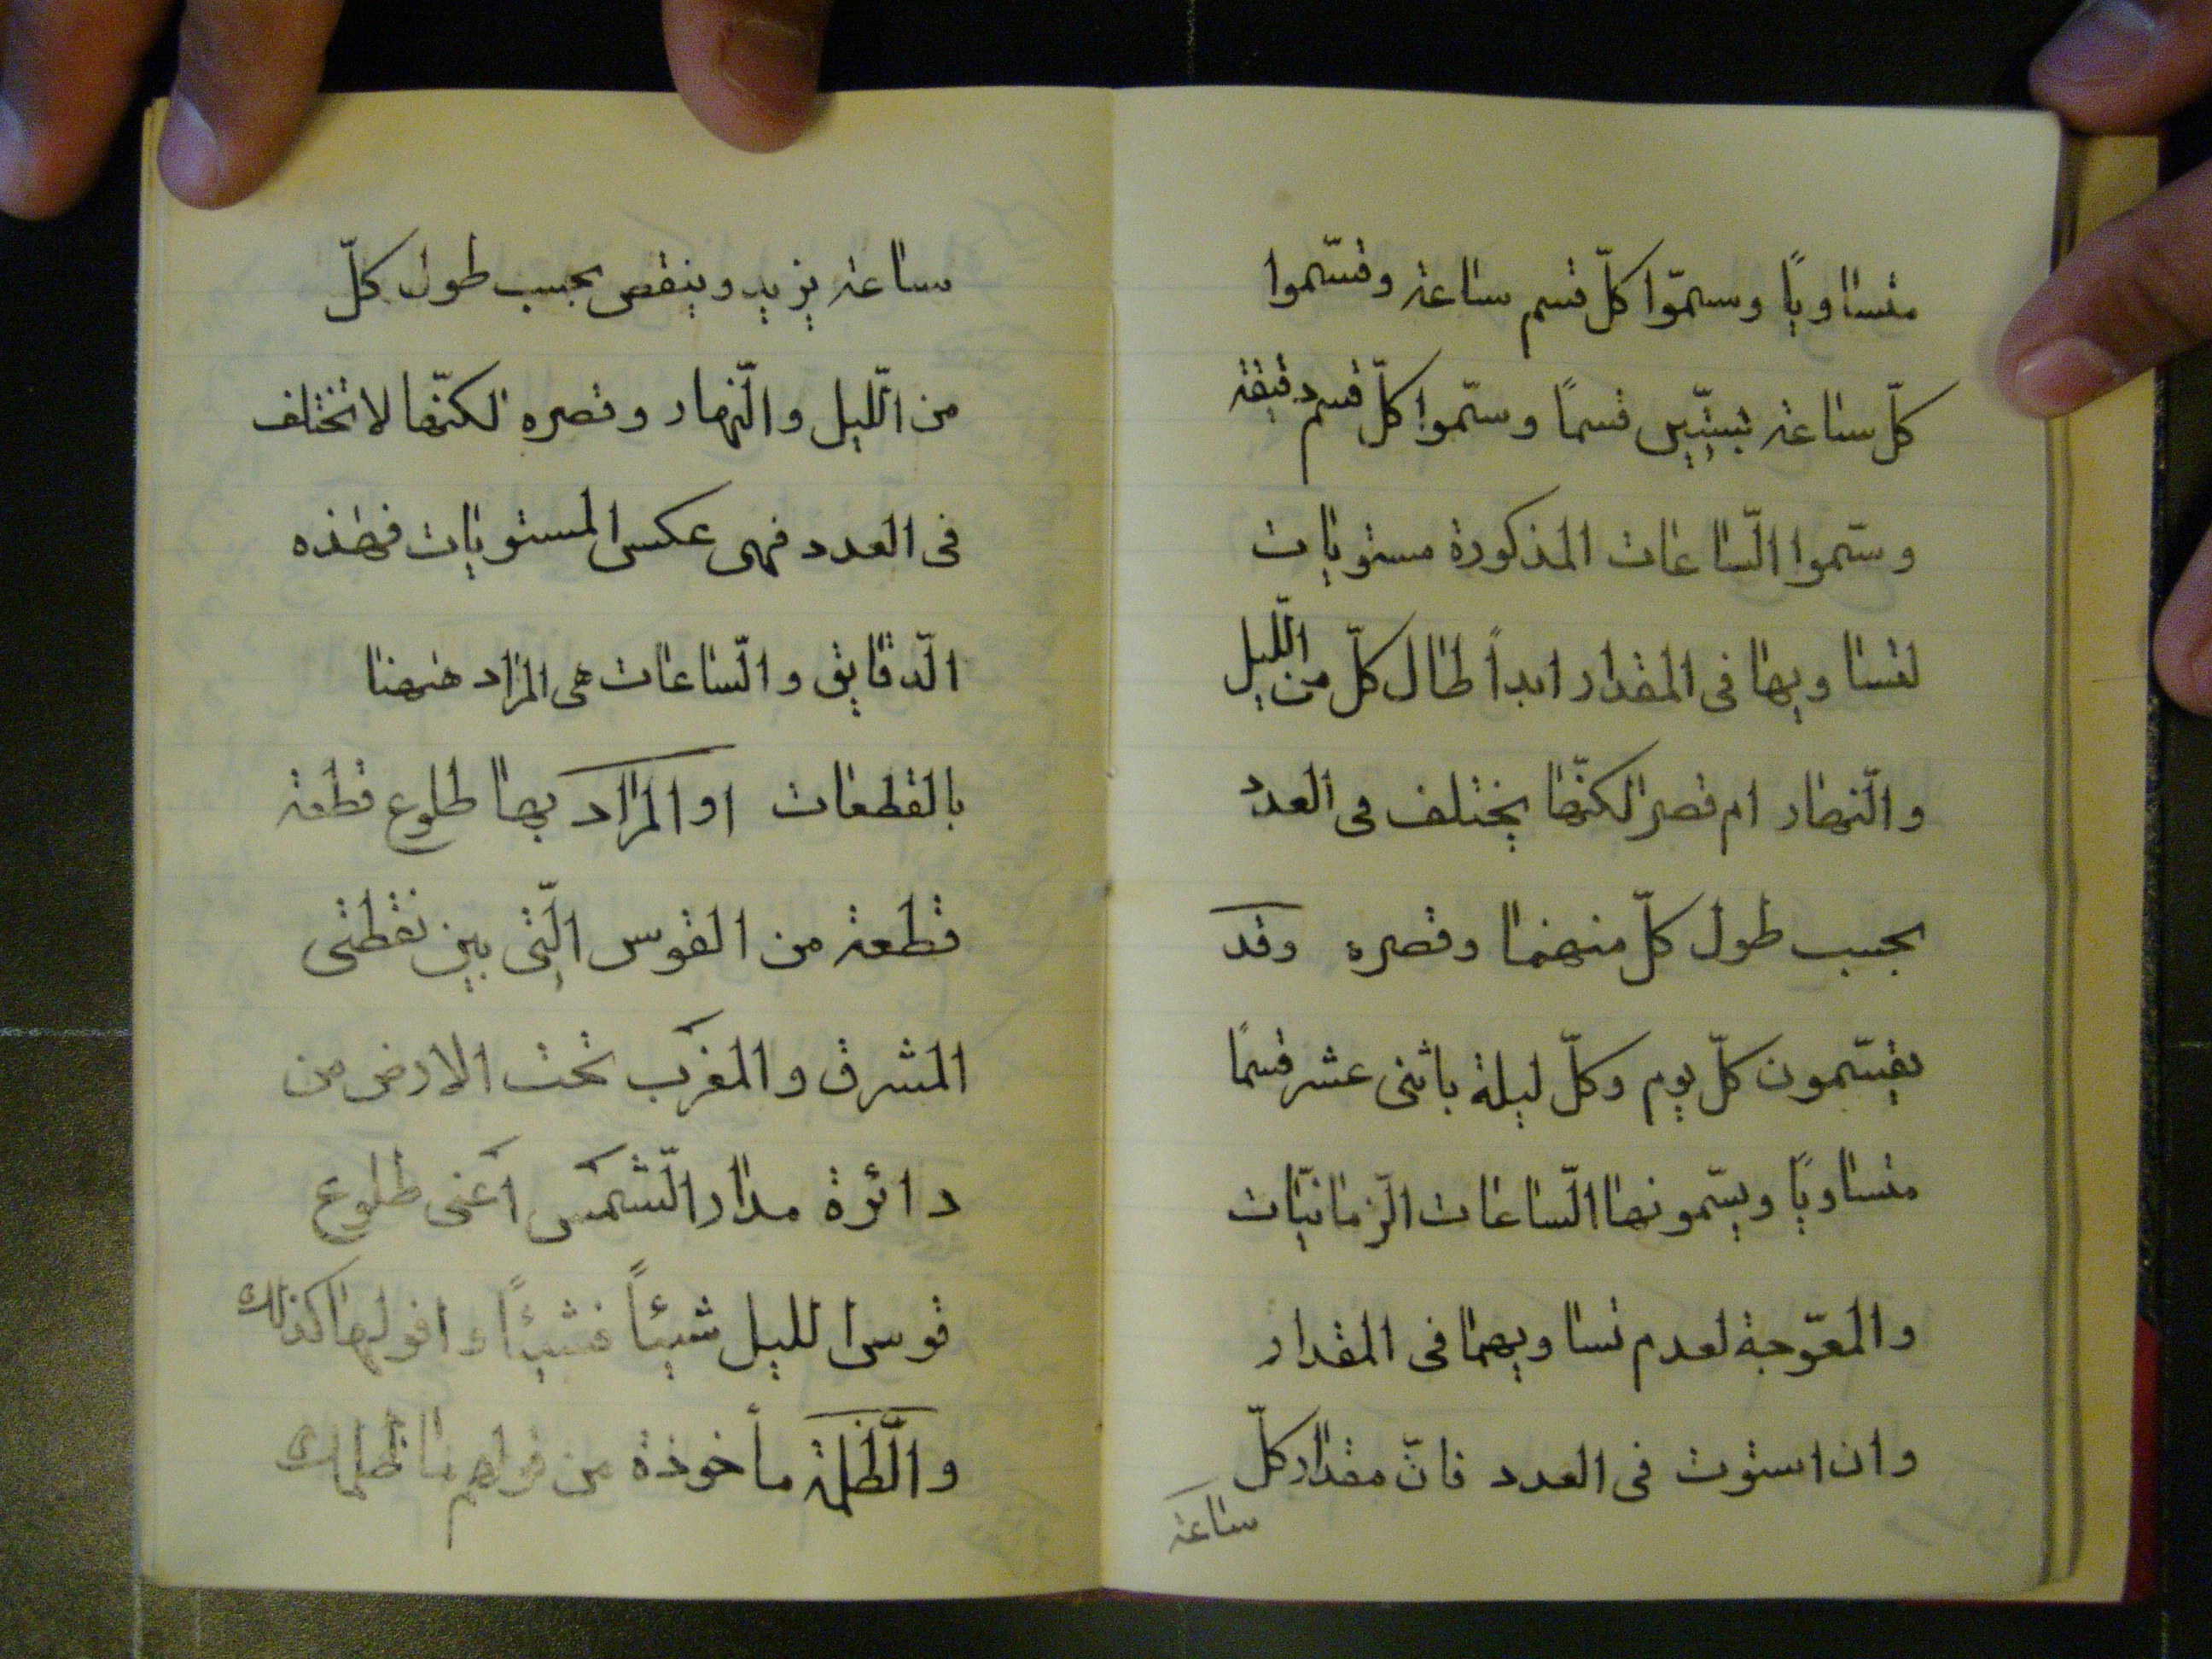 متساويًا وسمّوا كلّ قسم ساعة وقسّموا
كلّ ساعة بستّين قسمًا وسمّوا كلّ قسم دقيقة
وسمّوا السّاعات المذكورة مستويات
لتساويها فى المقدار ابداً طال كلّ من اللّيل
والنّهار ام قصر لكنّها يختلف فى العدد
بحسب طول كلّ منهما وقصره وقد
يقسّمون كلّ يوم وكلّ ليلة باثنى عشر قسمًا
متساويًا ويسمّونها السّاعات الزّمانيّات
والمعوّجة لعدم تساويهما فى المقدار
وان استوت فى العدد فانّ مقدار كلّ
ساعة
ساعة يزيد وينقص بحسب طول كلّ
من اللّيل والنّهار وقصره لكنّها لا تختلف
فى العدد فهى عكس المستويات فهذه
الدّقايق والسّاعات هى المراد هنهنا
بالقطعات او المراد بها طلوع قطعة
قطعة من القوس الّتى بين نقطتى
المشرق والمغرب تحت الارض من
دائرة مدار الشّمس اعنى طلوع
قوس الليل شيئاً فشيئاً وافولها كذلك
والظّلمة مأخوذة من قولهم ما ظلمك